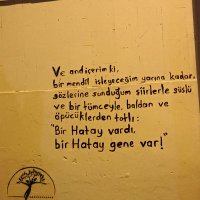 Ve andiçerim ki,
bir mendil işleyeceğim yarına kadar.
sözlerine sunduğum şiirlerle süslü
ve bir tümceyle, baldan ve
öpücüklerden tatlı:
"Bir Hatay vardı,
bir Hatay gene var!"